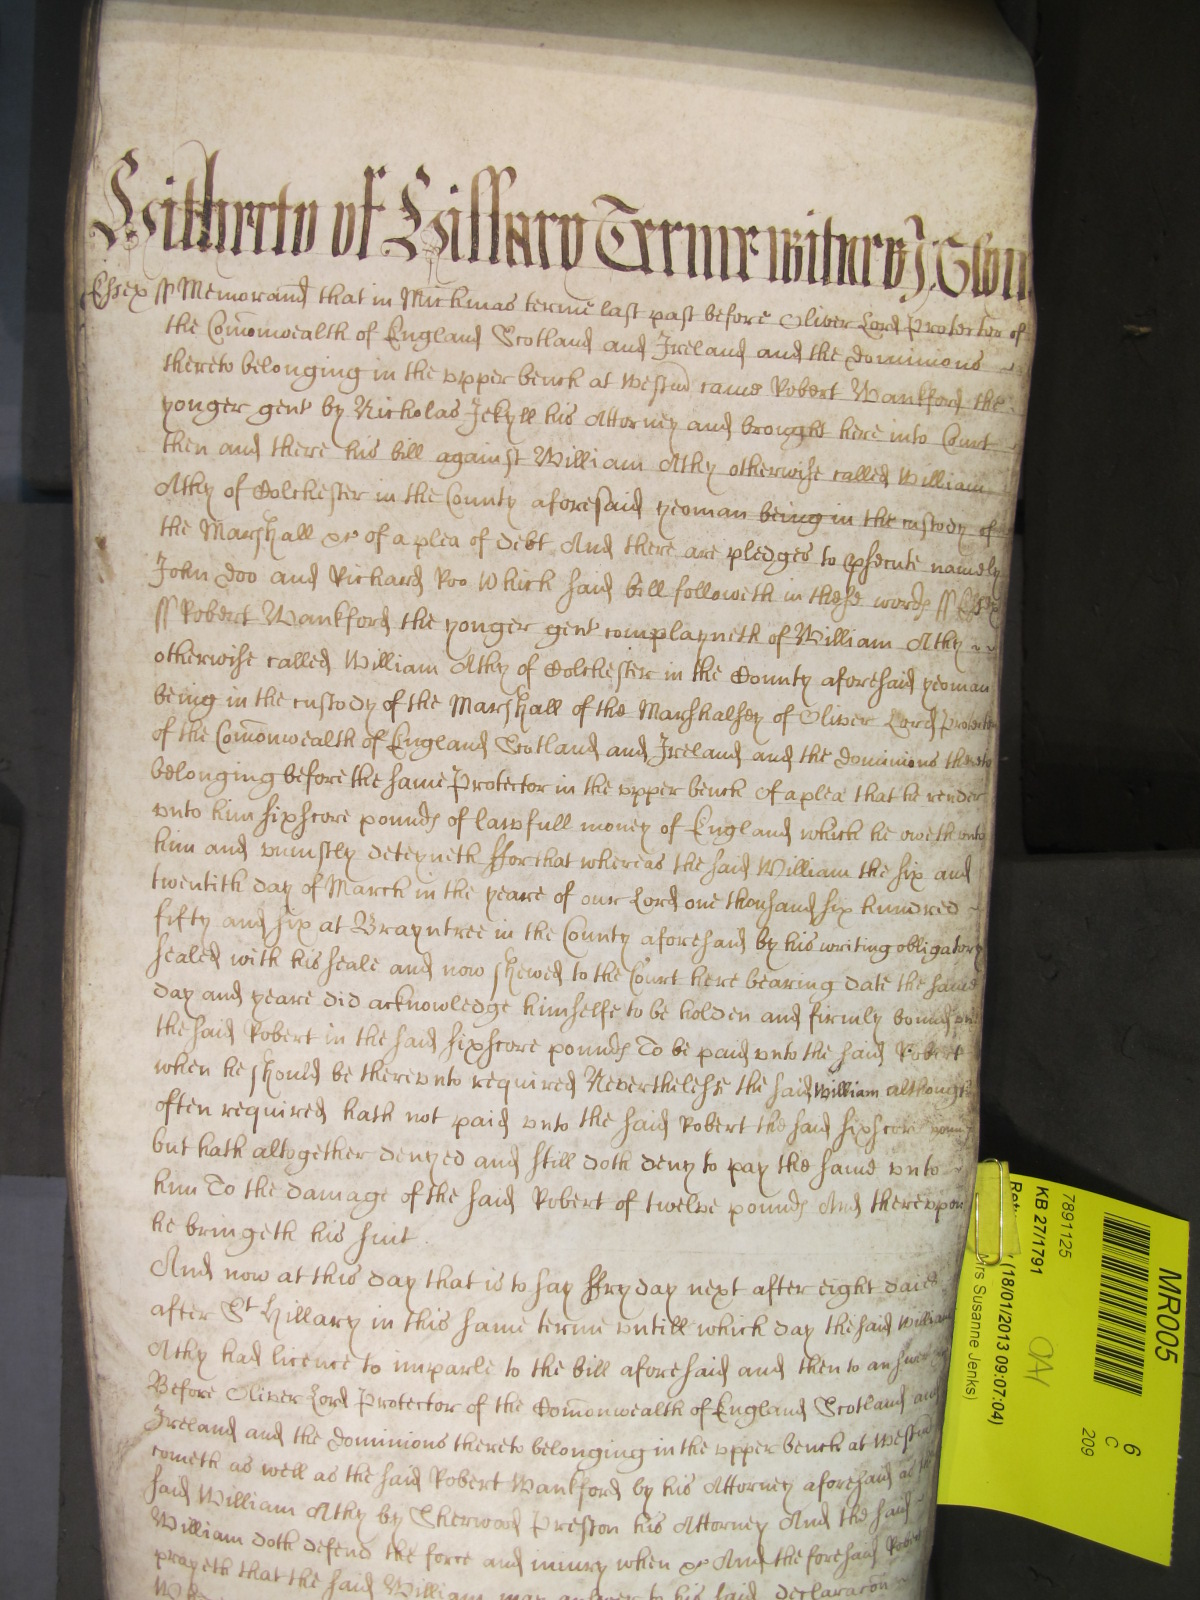 Hitherto of Hillary Terme witnes J: Glyn
Essex ss Memorand that in Michmas terme last past before Oliver Lord Protector of
the Com̄onwealth of England Scotland and Ireland and the dominions
thereto belonging in the vpper bench at Westm̄ came Robert Wankford the
yonger gent by Nicholas Jekyll his Attorney and brought here into Court
then and there his bill against William Athy otherwise called William
Athy of Colchester in the County aforesaid yeoman being in the custody of
the Marshall &c of a plea of debt And there are pledges to psecute namely
John Doo and Richard Roo Which said bill followeth in these words ss Essex
ss Robert Wankford the yonger gent complayneth of William Athy
otherwise called William Athy of Colchester in the County aforesaid yeoman
being in the custody of the Marshall of the Marshalsey of Oliver Lord Protector
of the Com̄onwealth of England Scotland and Ireland and the dominions thereto
belonging before the same Protector in the vpper bench of a plea that he render
vnto him sixscore pounds of lawfull money of England which he oweth vnto
him and vniustly deteyneth ffor that whereas the said William the six and
twentith day of March in the yeare of our Lord one thousand six hundred
fifty and six at Brayntree in the County aforesaid by his writing obligatory
sealed with his seale and now shewed to the Court here bearing date the same
day and yeare did acknowledge himselfe to be holden and firmly bound vnto
the said Robert in the said sixscore pounds To be paid vnto the said Robert
when he should be therevnto required Neverthelesse the said William although
often required hath not paid vnto the said Robert the said sixscore pounds
but hath altogether denyed and still doth deny to pay the same vnto
him To the damage of the said Robert of twelve pounds And therevpon
he bringeth his suit.
And now at this day that is to say ffryday next after eight daies
after St Hillary in this same terme vntill which day the said William
Athy had licence to imparle to the bill aforesaid and then to answer
Before Oliver Lord Protector of the Com̄onwealth of England Scotland and
Ireland and the dominions thereto belonging in the vpper bench at Westm̄
cometh as well as the said Robert Wankford by his Attorney aforesaid as the
said William Athy by Sherwood Preston his Attorney And the said
William doth defend the force and iniury when &c And the foresaid Robert
prayeth that the said William may answer to his said declaracōn
MR005
6
C
209
7891125
KB 27/1791
(18/01/2013 09:07:04)
Mrs Susanne Jenks)